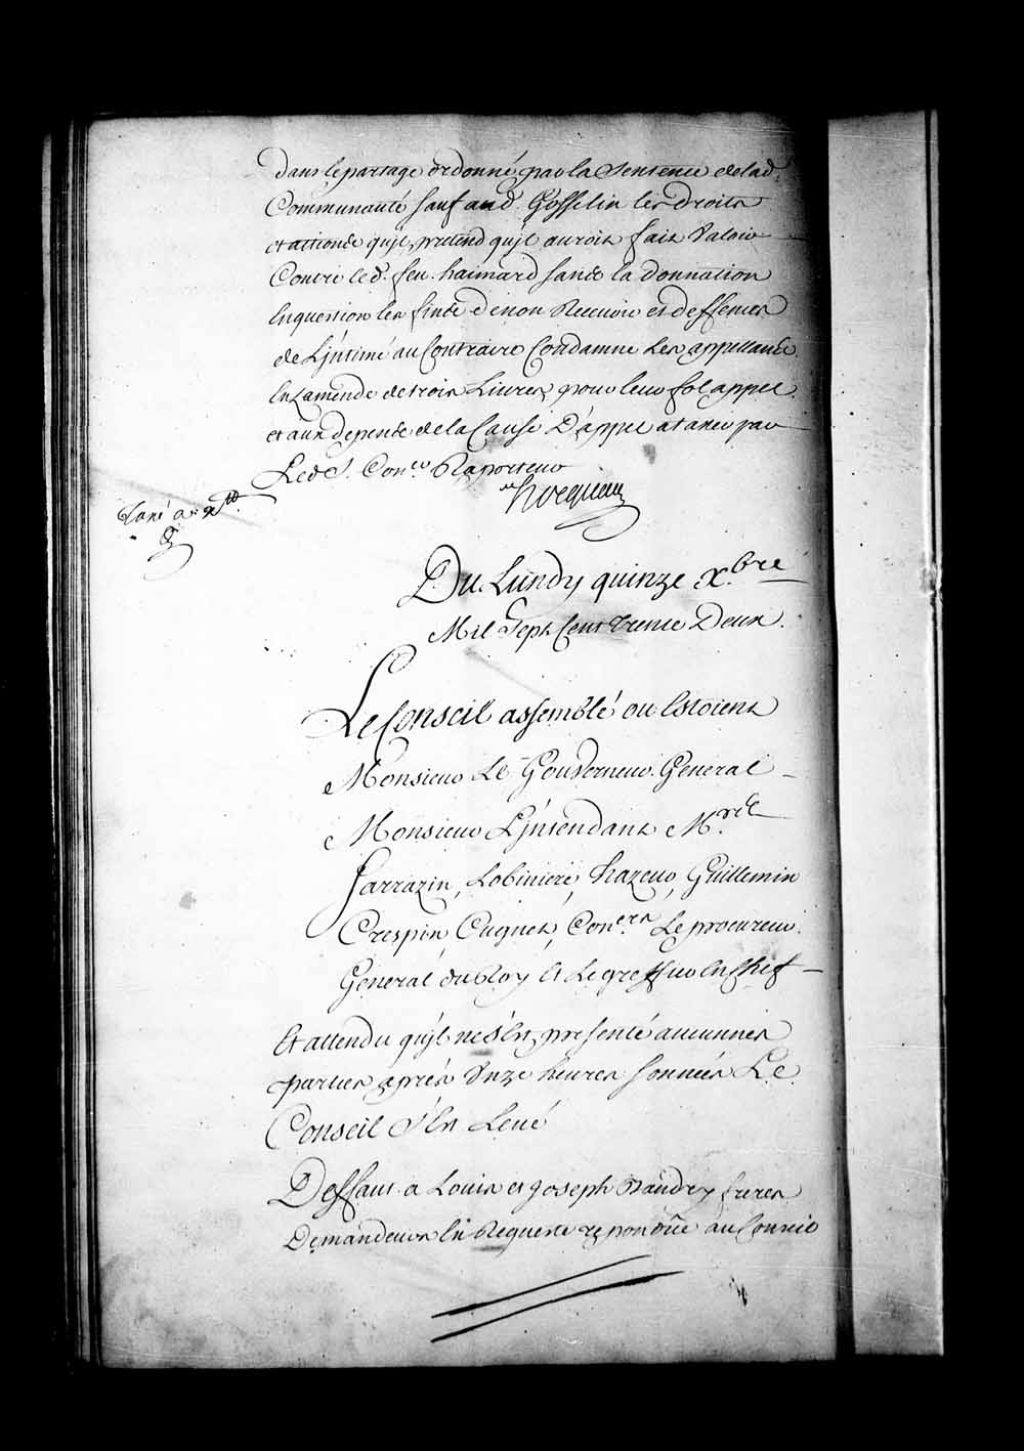 dans le partage ordonné par la Sentence de lad.
Communauté sauf aud. Gosselin les droits
et actions qu'jl pretend qu'jl auroit fait Valoir
Contre led. feu haimard sans la donnation
En question les fins de non Recevoir et deffences
de L'jntimé au Contraire Condamne Les appellants
En L'amende de trois Livres pour leur fol appel
et aux depens de la Cause D'appel a taxer par
Led S. Con.er Raporteur
Hocquart
Taxé a
Du Lundy quinze X.bre
Mil Sept Cent Trente Deux.
Le Conseil assemblé ou Estoient
Monsieur Le Gouverneur General
Monsieur L'jntendant M.rs
Sarrazin, Lobiniere, hazeur, Guillemin
Crespin, Cugnet, Con.ers Le procureur
General du Roy Et Le greffier En Chef
Et attendu qu'jl ne s'Est presenté aucunnes
parties aprés Unze heures sonnées Le
Conseil S'Est Levé
Deffaut a Louis et Joseph Baudry freres
Demandeurs En Requeste repondüe au Conseil